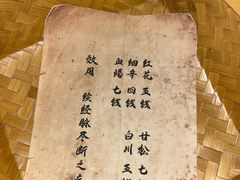 红花 五钱 甘松 七
细辛 四钱 白川 五
血竭 七钱
效用
续经脉尽断之